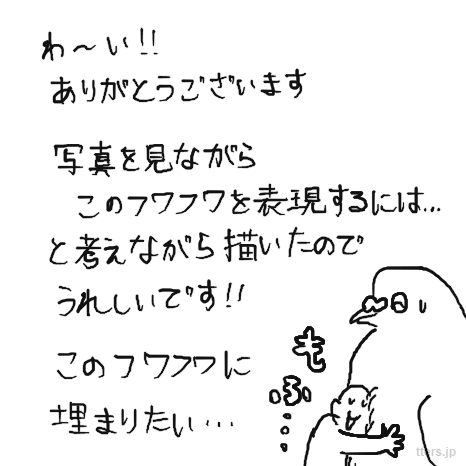 わ～い!!
ありがとうございます
写真を見ながら
このフワフワを表現するには...
と考えながら描いたので
うれしいです!!
このフワフワに
埋まりたい...
もふ...
tters.jp